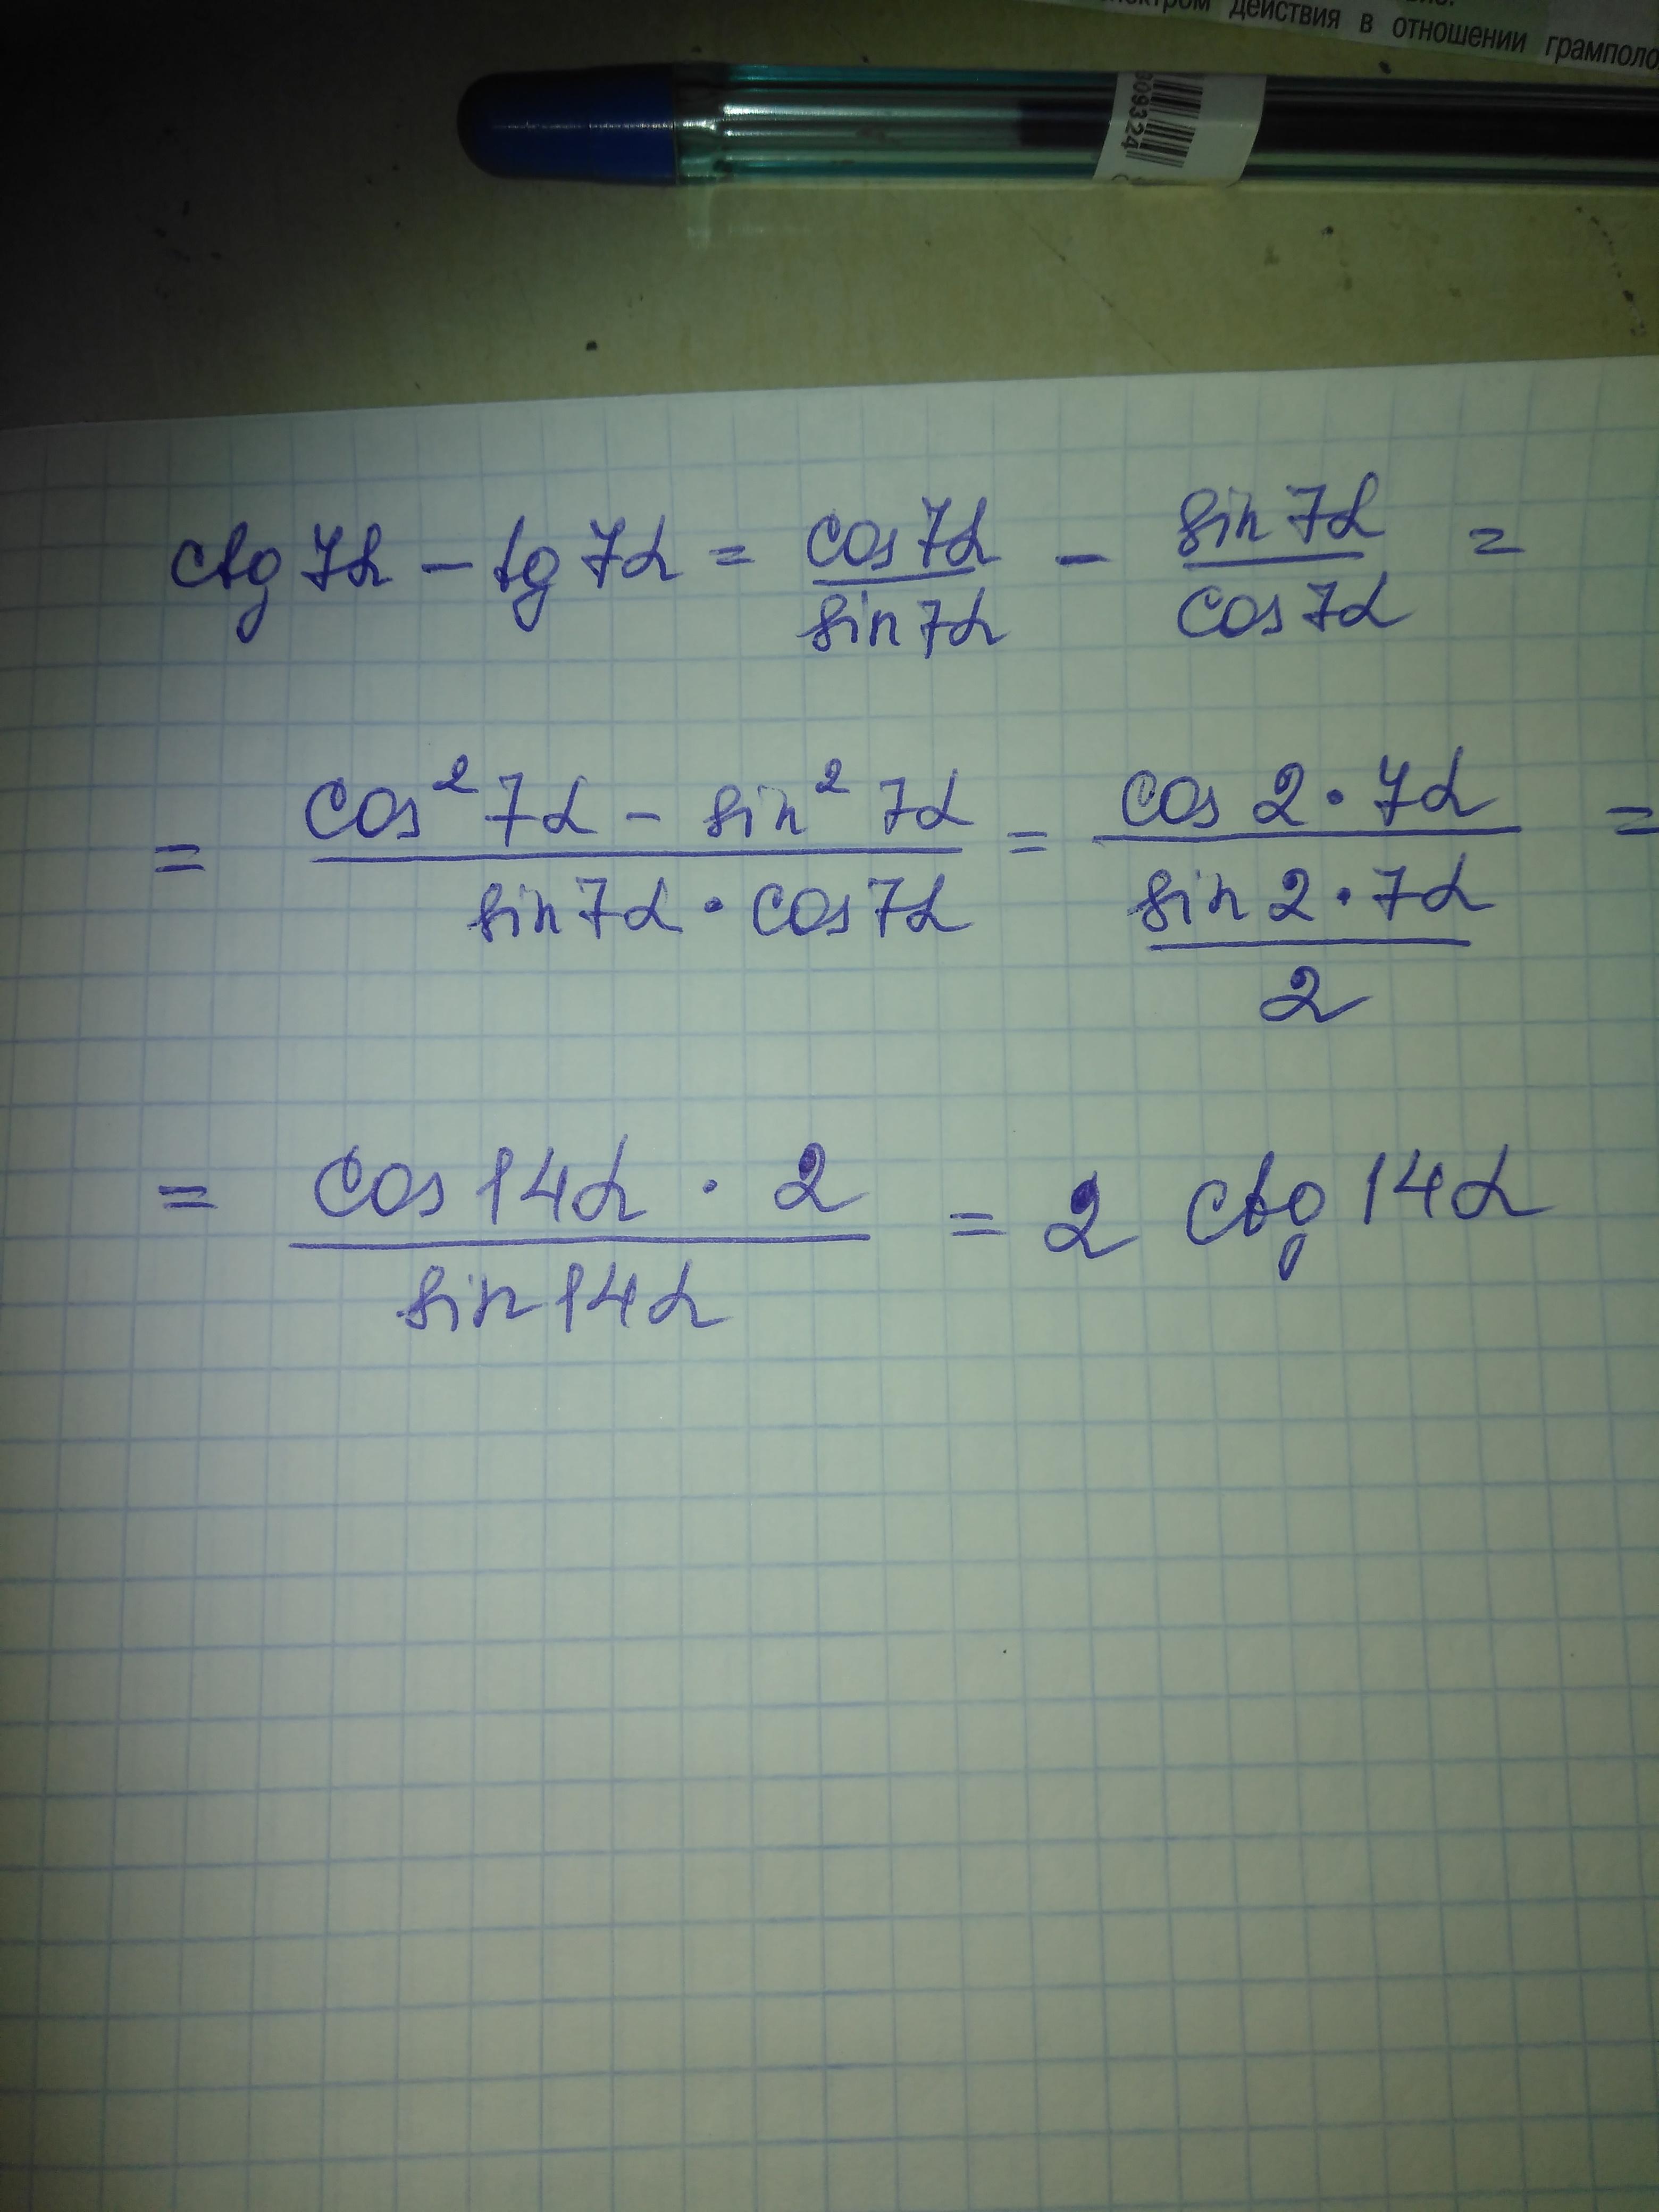 действия в отношении
309324
ctg 7α - tg 7α = cos 7α / sin 7α - sin 7α / cos 7α =
= (cos² 7α - sin² 7α) / (sin 7α · cos 7α) = (cos 2 · 7α) / ((sin 2 · 7α) / 2) =
= (cos 14α · 2) / (sin 14α) = 2 ctg 14α